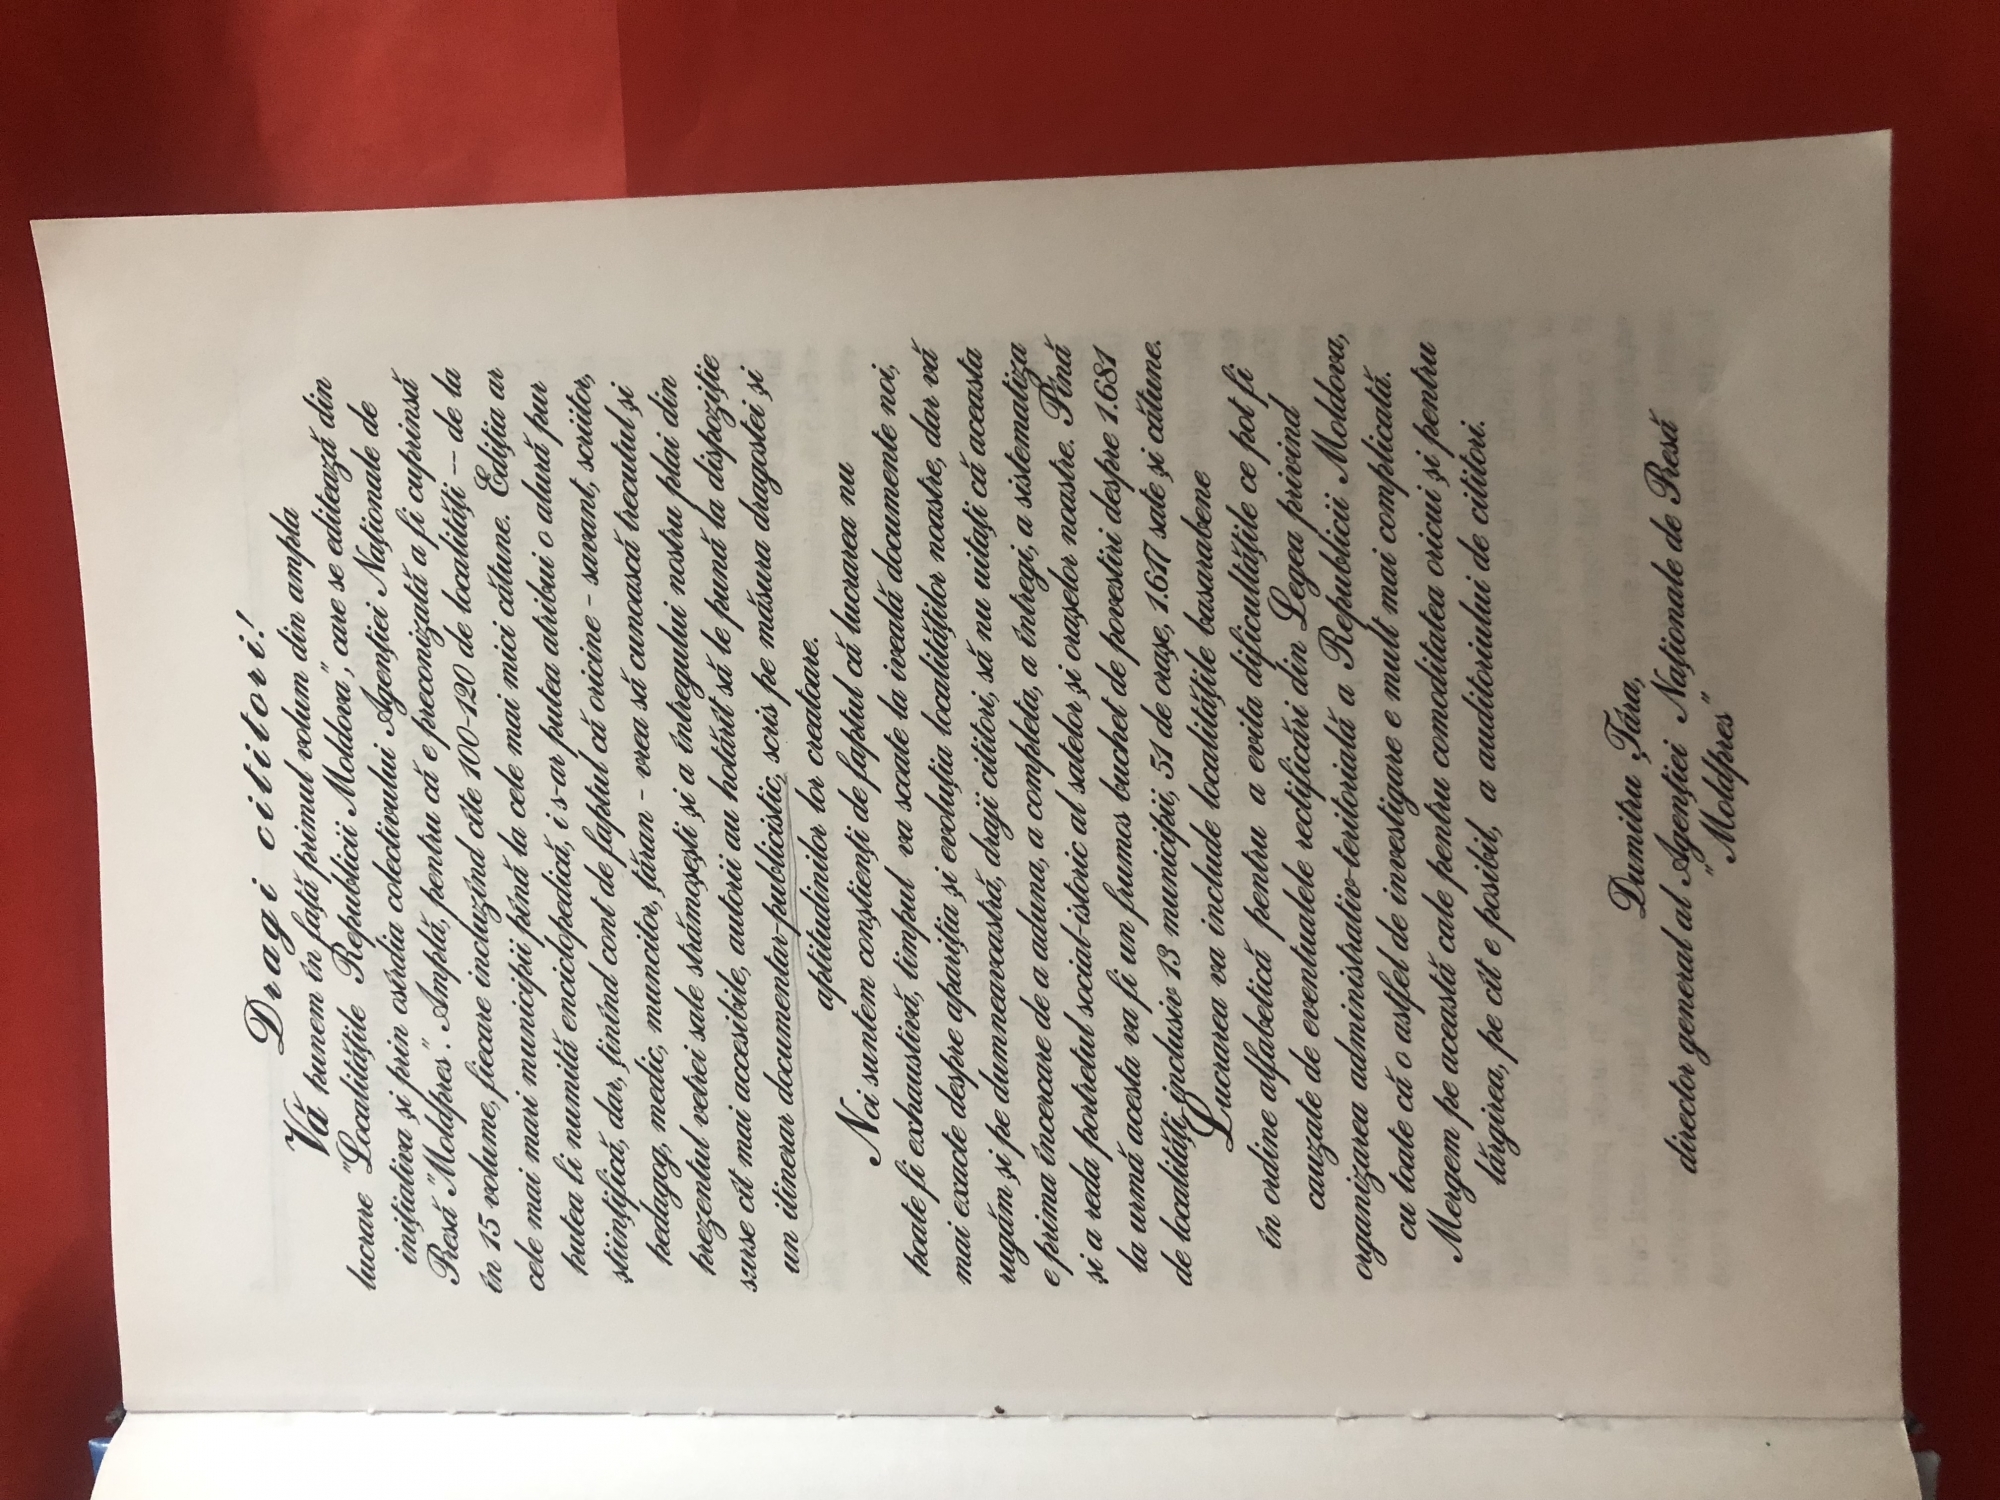 Dragi cititori!
Vă punem în față primul volum din ampla
lucrare "Localitățile Republicii Moldova", care se editează din
inițiativa și prin osîrdia colectivului Agenției Naționale de
Presă "Moldpres". Amplă, pentru că e preconizată a fi cuprinsă
în 15 volume, fiecare incluzînd cîte 100-120 de localități — de la
cele mai mari municipii pînă la cele mai mici cătune. Ediția ar
putea fi numită enciclopedică, i s-ar putea atribui o alură pur
științifică, dar, ținînd cont de faptul că oricine - savant, scriitor,
pedagog, medic, muncitor, țăran - vrea să cunoască trecutul și
prezentul vetrei sale strămoșești și a întregului nostru plai din
surse cît mai accesibile, autorii au hotărît să le pună la dispoziție
un itinerar documentar-publicistic, scris pe măsura dragostei și
aptitudinilor lor creatoare.
Noi suntem conștienți de faptul că lucrarea nu
poate fi exhaustivă, timpul va scoate la iveală documente noi,
mai exacte despre apariția și evoluția localităților noastre, dar vă
rugăm și pe dumneavoastră, dragi cititori, să nu uitați că aceasta
e prima încercare de a aduna, a completa, a întregi, a sistematiza
și a reda portretul social-istoric al satelor și orașelor noastre. Pînă
la urmă acesta va fi un frumos buchet de povestiri despre 1.681
de localități, inclusiv 13 municipii, 51 de orașe, 1.617 sate și cătune.
Lucrarea va include localitățile basarabene
în ordine alfabetică pentru a evita dificultățile ce pot fi
cauzate de eventualele rectificări din Legea privind
organizarea administrativ-teritorială a Republicii Moldova,
cu toate că o astfel de investigare e mult mai complicată.
Mergem pe această cale pentru comoditatea oricui și pentru
lărgirea, pe cît e posibil, a auditoriului de cititori.
Dumitru Țâra,
director general al "Agenției Naționale de Presă
"Moldpres"